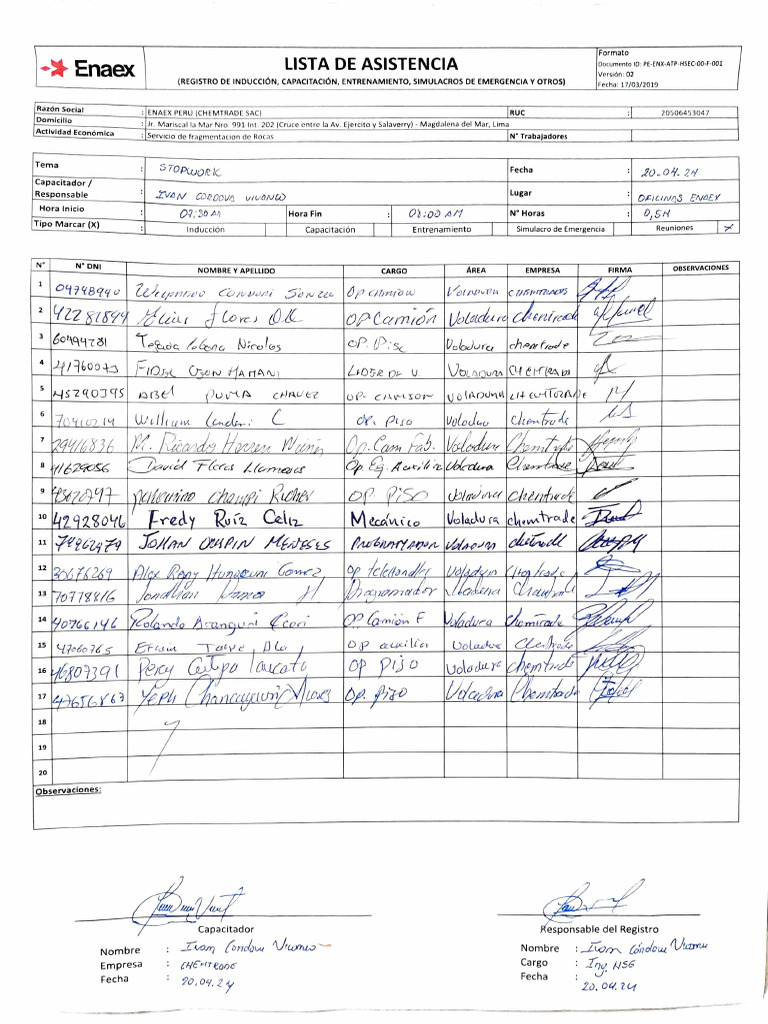 Enaex
LISTA DE ASISTENCIA
(REGISTRO DE INDUCCIÓN, CAPACITACIÓN, ENTRENAMIENTO, SIMULACROS DE EMERGENCIA Y OTROS)
Formato
Documento ID: PE-ENX-ATP-HSEC-00-F-001
Versión: 02
Fecha: 17/03/2019
Razón Social : ENAEX PERÚ (CHEMTRADE SAC) RUC : 20506453047
Domicilio : Jr. Mariscal la Mar Nro. 991 Int. 202 (Cruce entre la Av. Ejercito y Salaverry) - Magdalena del Mar, Lima
Actividad Económica : Servicio de fragmentacion de Rocas N° Trabajadores
Tema : STOPWORK Fecha : 20.04.24
Capacitador / Responsable : IVAN CORDOVA VIVANCO Lugar : OFICINAS ENAEX
Hora Inicio : 07:30 AM Hora Fin : 08:00 AM N° Horas : 0,5H
Tipo Marcar (X) : Inducción Capacitación Entrenamiento Simulacro de Emergencia Reuniones X
N° N° DNI NOMBRE Y APELLIDO CARGO ÁREA EMPRESA FIRMA OBSERVACIONES
1 04748940 OP CAMION VOLADURA CHEMTRADE
2 42281844 Elias Flores OP Camión Voladura chemtrade
3 60494281 Nicolas OP. Piso Voladura chemtrade
4 41760073 FIDEL MAMANI LIDER DE V. VOLADURA CHEMTRADE
5 45290395 ABEL PUMA CHAVEZ OP. CAMION VOLADURA
6 William C OP. Piso Voladura chemtrade
7 29416836 M. Ricardo Op. Cam Fab. Voladura Chemtrade
8 41629056 David Flores Llamocas Op Eq. Auxiliar Voladura Chemtrade
9 Champi OP. PISO chemtrade
10 42928046 Fredy Ruíz Celiz Mecánico Voladura chemtrade
11 JOHAN OSPIN MENESES PROGRAMADOR VOLADURA
12 Alex Gomez Op telehandler
13 70778816 Jonathan H Programador
14 40766146 Rolando OP. Camión F Voladura chemtrade
15 47060765 OP auxiliar Voladura Chemtrade
16 46807391 Percy OP PISO Voladura chemtrade
17 47656863 Op. piso Voladura Chemtrade
18
19
20
Observaciones:
Capacitador
Nombre : Ivan Córdova Vivanco
Empresa : CHEMTRADE
Fecha : 20.04.24
Responsable del Registro
Nombre : Ivan Córdova Vivanco
Cargo : Ing. HSE
Fecha : 20.04.24